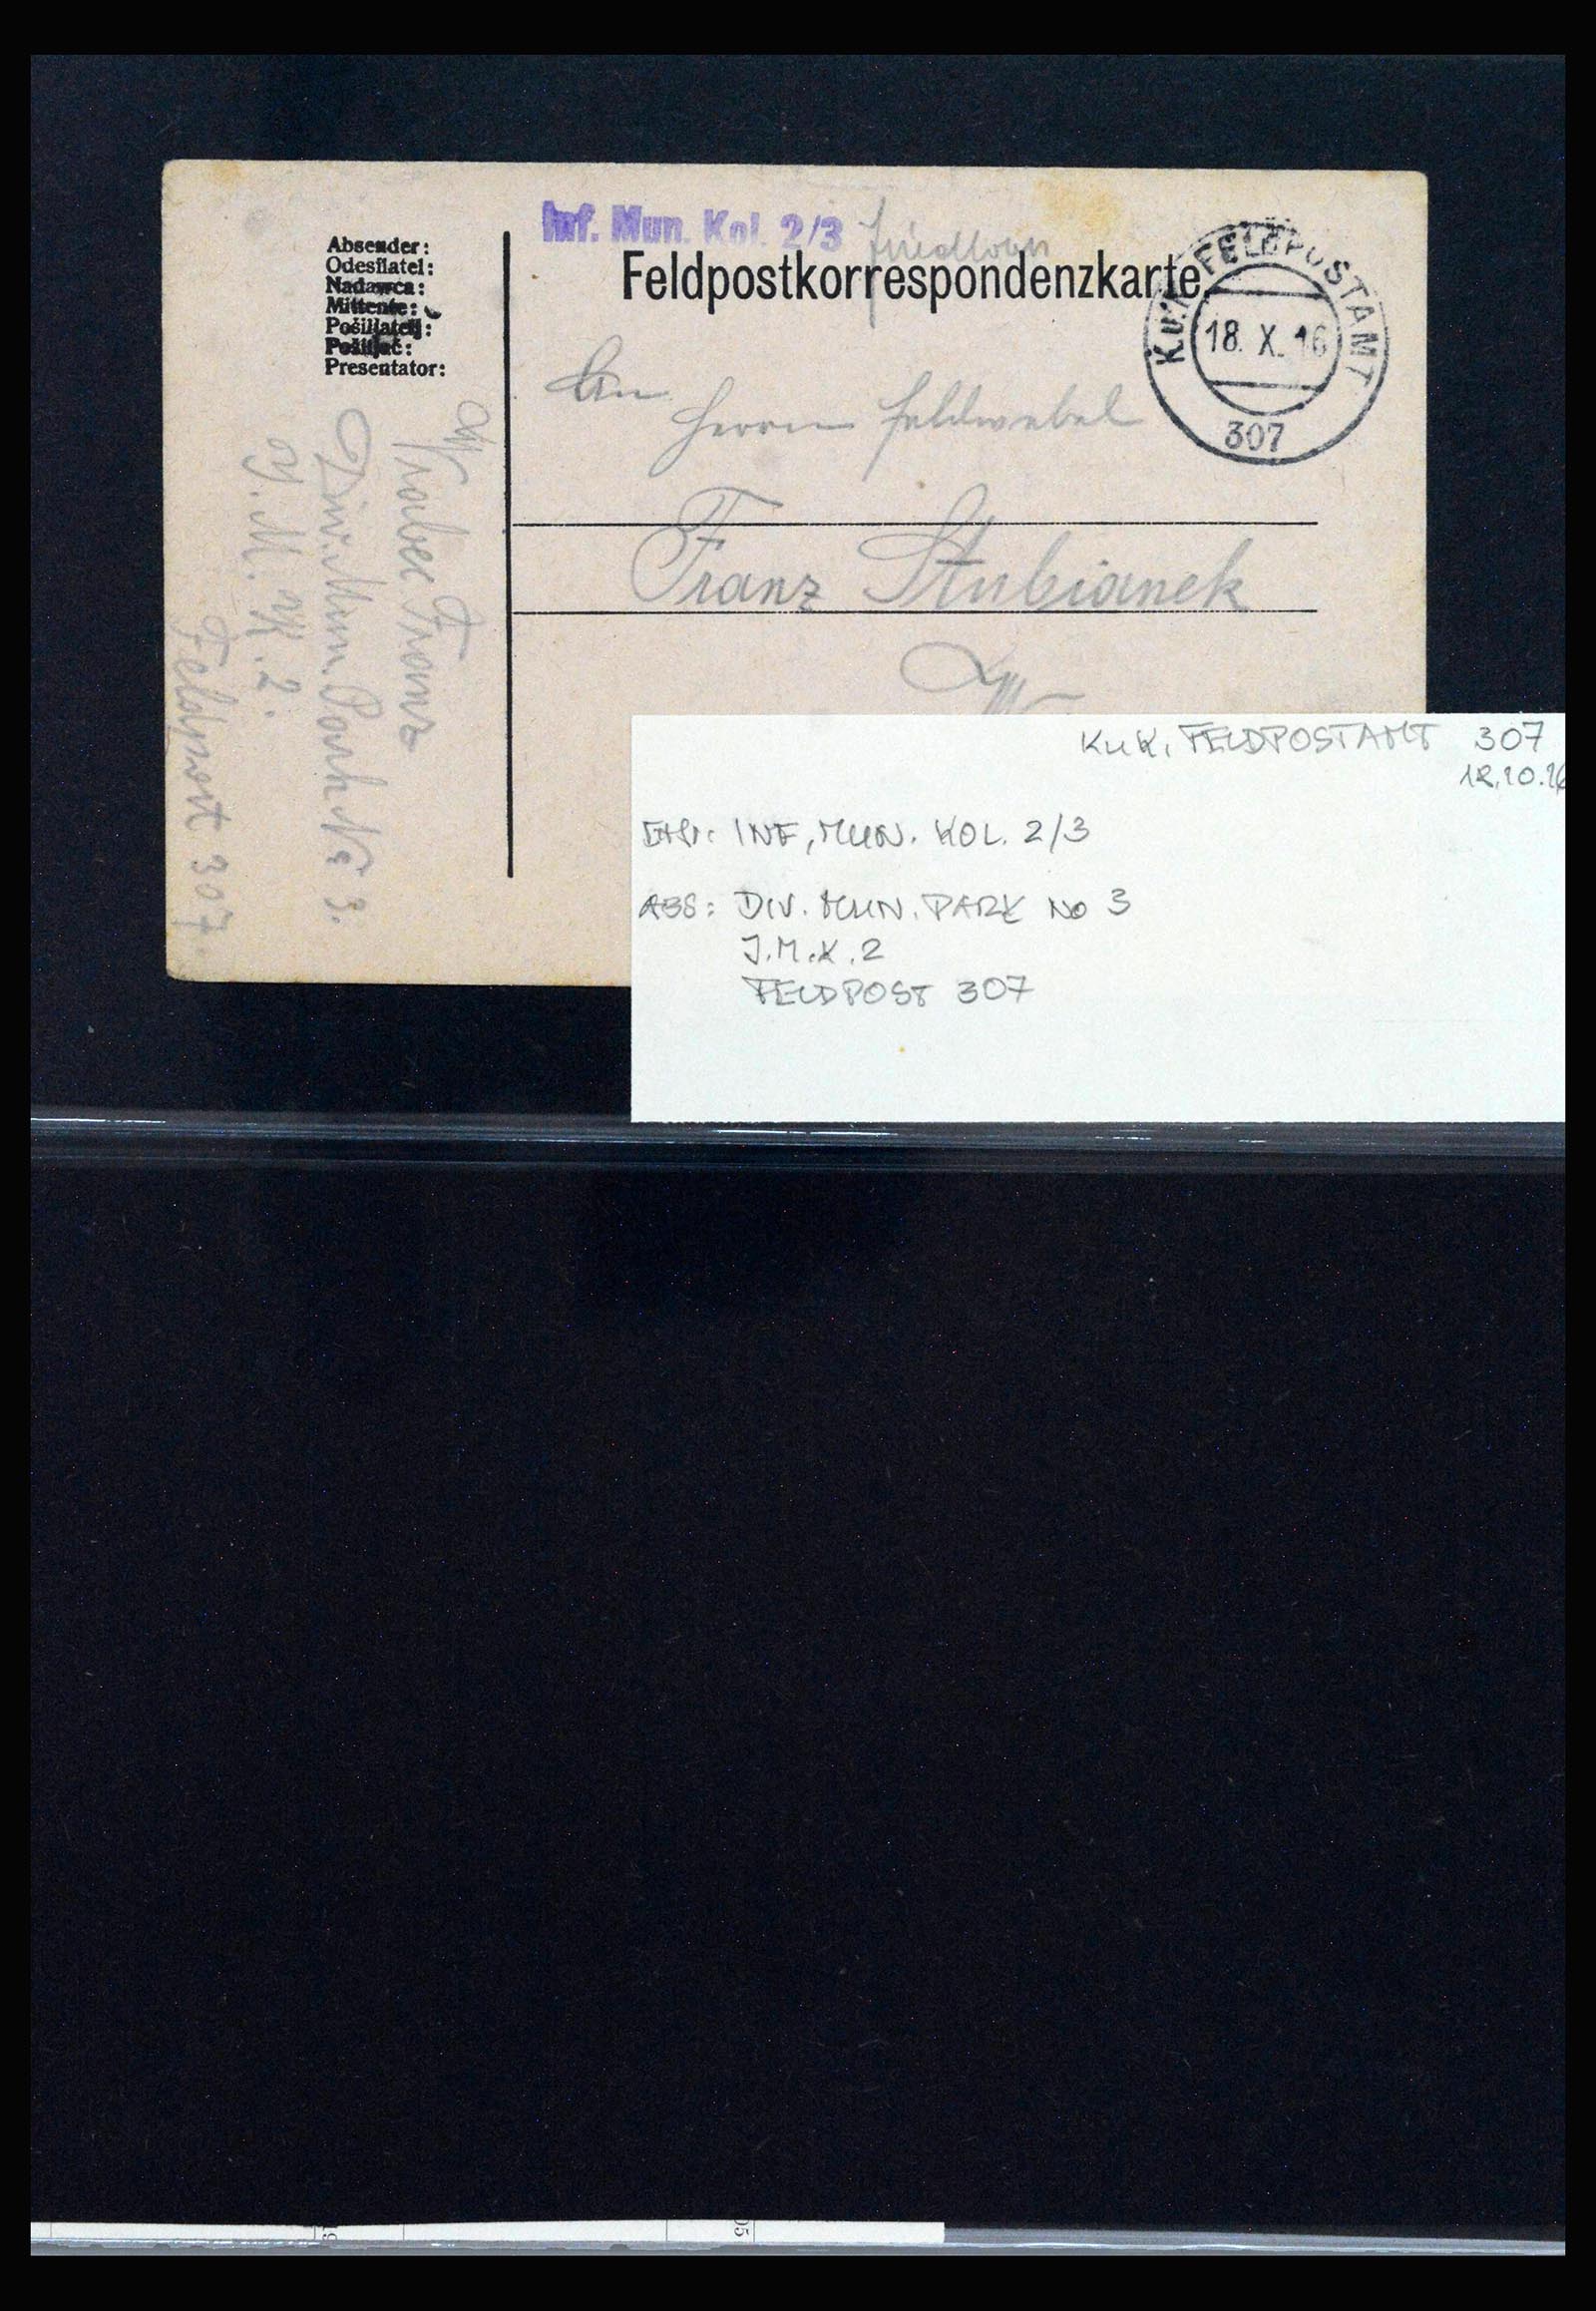 Inf. Mun. Kol. 2/3
Feldpostkorrespondenzkarte
K.u.K. FELDPOSTAMT
18. X. 16
307
Absender:
Odesílatel:
Nadawca:
Mittente:
Pošiljatelj:
Pošiljač:
Presentator:
An
Herrn Feldwebel
Franz Stubianek
Franz
Div. Mun. Park No 3.
J. M. K. 2.
Feldpost 307.
K.u.K. FELDPOSTAMT 307
18.10.16
INF. MUN. KOL. 2/3
ABS: DIV. MUN. PARK No 3
J.M.K. 2
FELDPOST 307